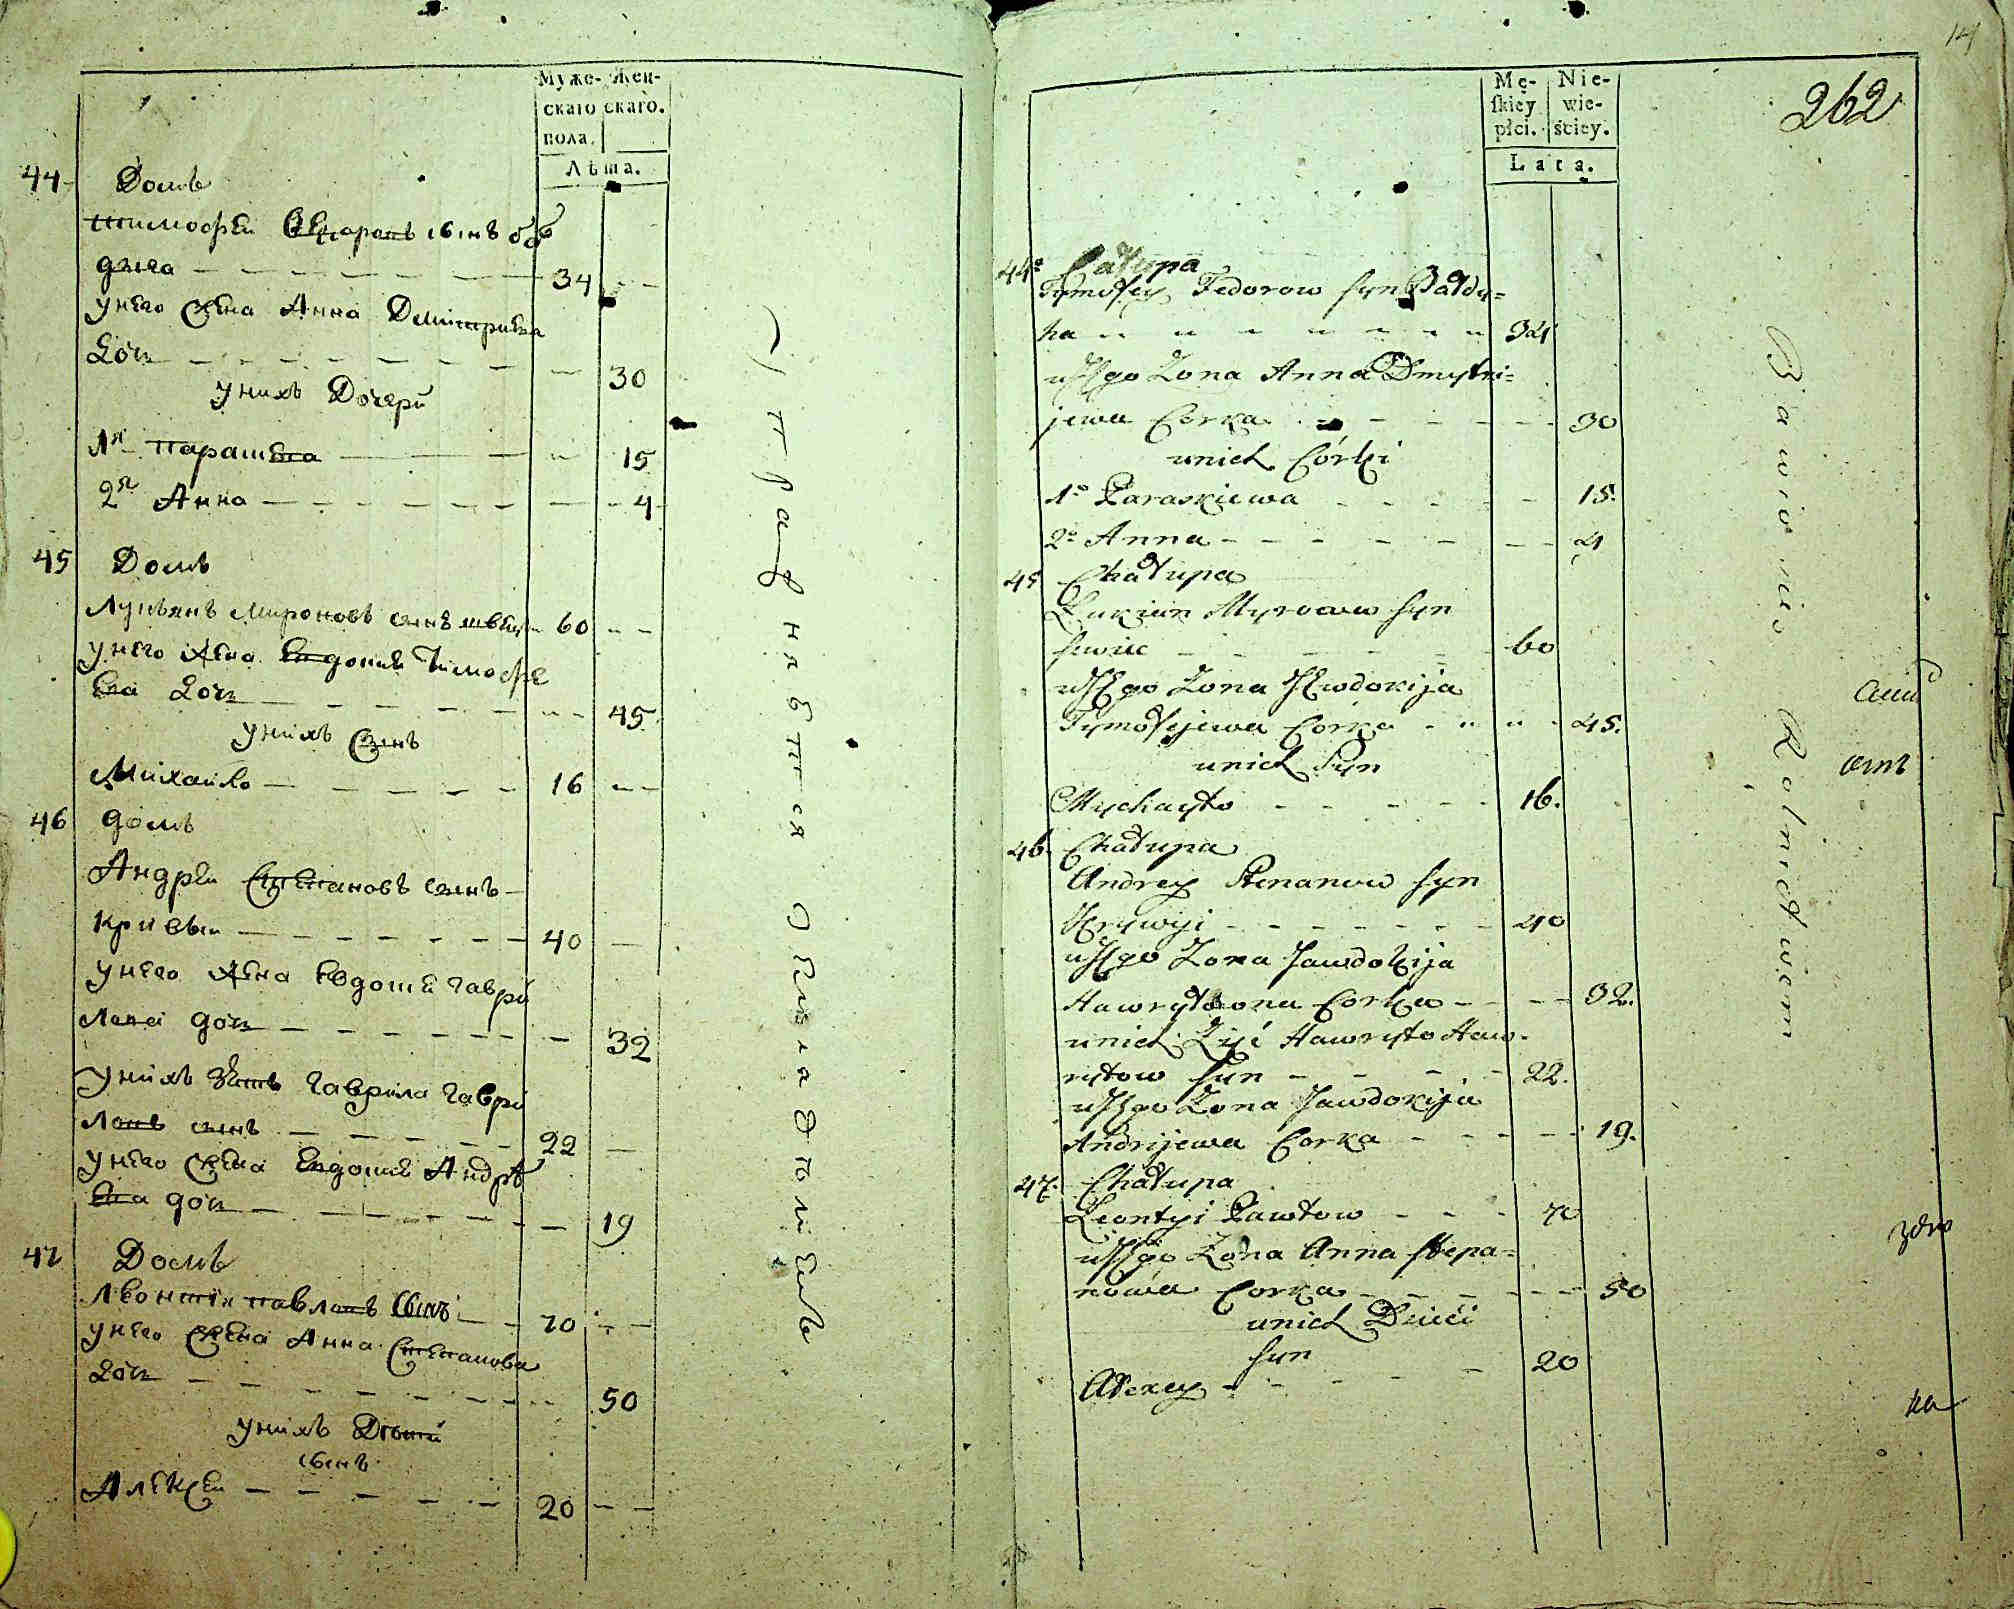 Муже- Жен-
скаго скаго.
пола.
Лѣта.
44 Домъ
Тимофеи Феодоровъ сынъ бов
дыга 34
у него жена Анна Дмитриева
Доч 30
у нихъ Дочери
1я Парашева 15
2я Анна 4
45 Домъ
Лукъянъ Мироновъ сынъ швец 60
у него жена Евдокия Тимофе
ева Доч 45
у нихъ Сынъ
Михаило 16
46 домъ
Андреи Степановъ сынъ
Кривыи 40
у него жена Евдокия Гаври
лова доч 32
у нихъ зять Гаврила Гаври
ловъ сынъ 22
у него жена Евдокия Андре
ева доч 19
47 Домъ
Леонтии Павловъ Сынъ 70
у него жена Анна Степанова
Доч 50
у нихъ Дети
сынъ
Алексеи 20
упражняется
14
262
Mę- Nie-
skiey wie-
płci. ściey.
Lata.
44 Chałupa
Tymofiey Fedorow syn Bałdy=
ha 34
u Jego Zona Anna Dmytri=
jewa Corka 30
unich Córki
1o Paraskiewa 15.
2o Anna 4
45 Chałupa
Łukian Myronow syn
szwiec 60
u Jego Zona Jewdokija
Tymofiejewa Corka 45.
unich Syn
Mychayło 16.
46. Chałupa
Andrey Stepanow syn
Krywyi 40
u Jego Zona Jawdokija
Hawryłowna Corka 32.
unich Zięć Hawryło Haw-
ryłow syn 22.
u Jego Zona Jawdokija
Andrijewa Corka 19.
47. Chałupa
Leontyi Pawłow 70
u Jego Zona Anna Stepa=
nowa Corka 50
unich Dzieci
syn
Alexey 20
Bawi się Rolnictwem